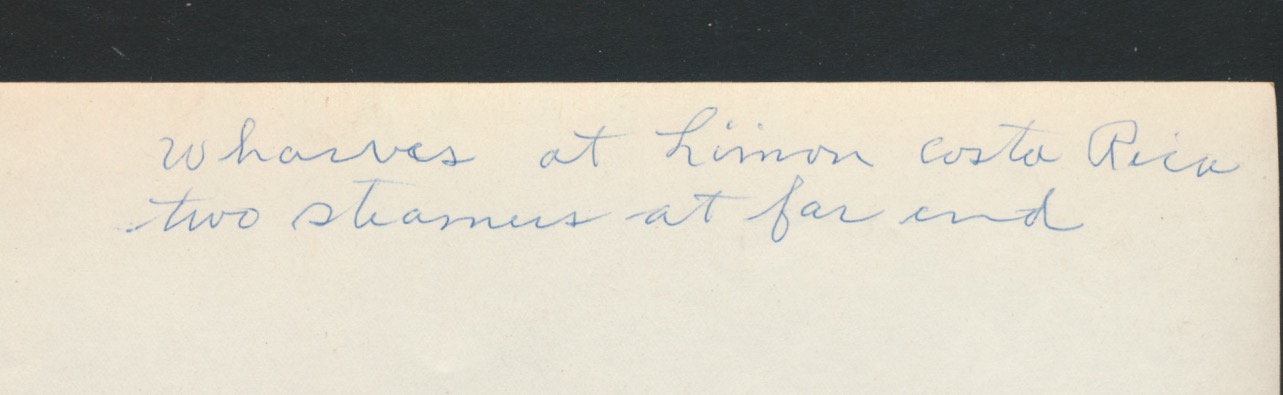 Wharves at Limon costa Rica
two steamers at far end